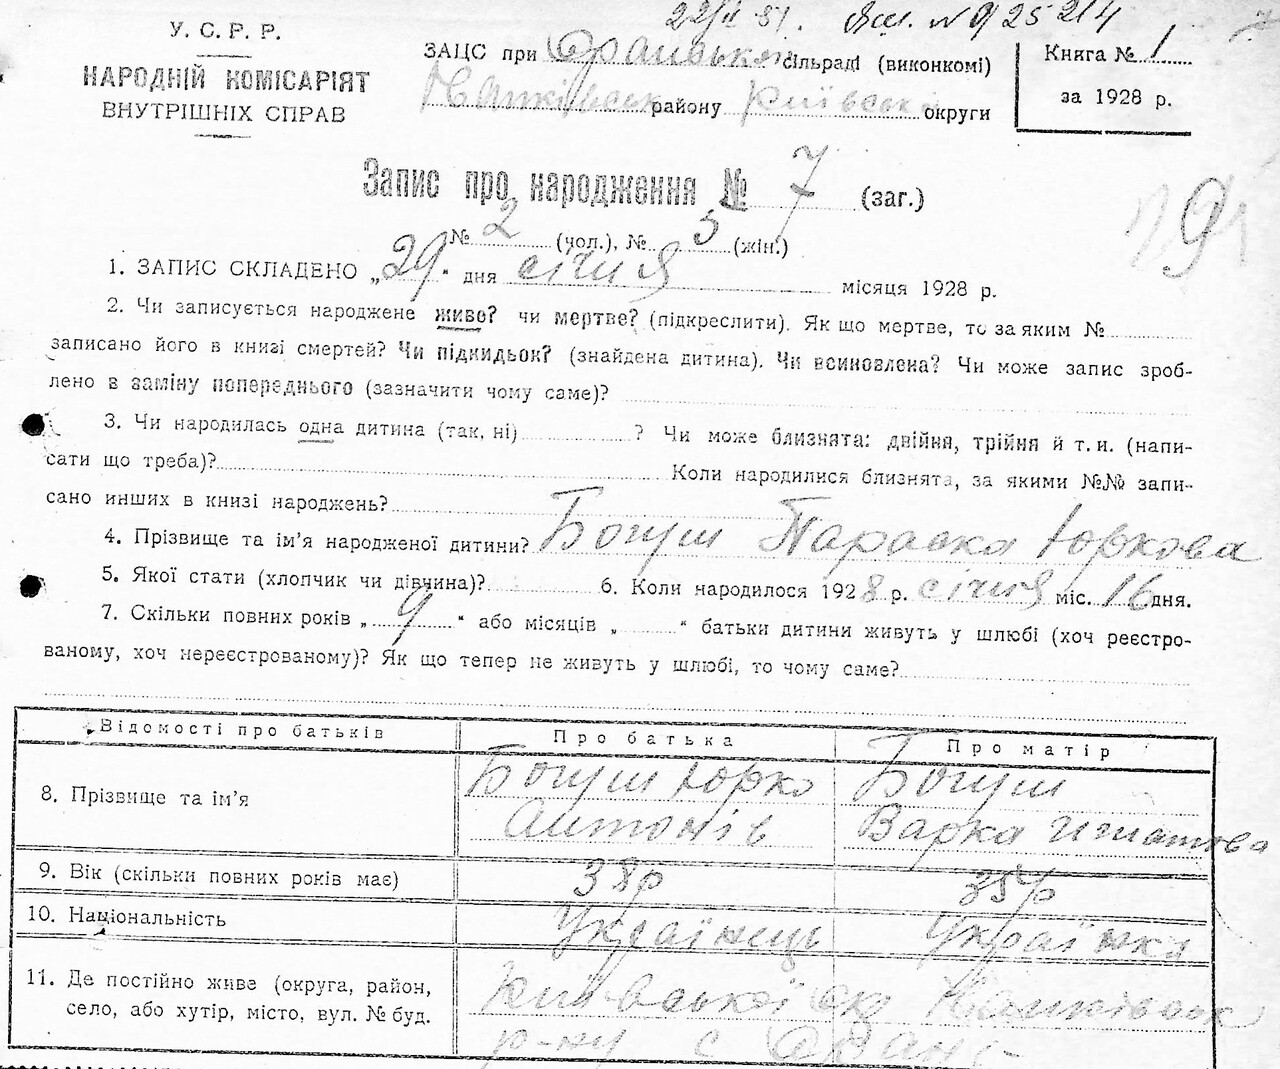 22/II 51. № 925214
У. С. Р. Р.
НАРОДНІЙ КОМІСАРІЯТ
ВНУТРІШНІХ СПРАВ
ЗАЦС при Оранській сільраді (виконкомі)
району Київської округи
Книга № 1
за 1928 р.
Запис про народження № 7 (заг.)
№ 2 (чол.), № 5 (жін.)
9
1. ЗАПИС СКЛАДЕНО „29" дня січня місяця 1928 р.
2. Чи записується народжене живе? чи мертве? (підкреслити). Як що мертве, то за яким №
записано його в книзі смертей? Чи підкидьок? (знайдена дитина). Чи всиновлена? Чи може запис зроб-
лено в заміну попереднього (зазначити чому саме)?
3. Чи народилась одна дитина (так, ні) ? Чи може близнята: двійня, трійня й т. и. (напи-
сати що треба)? Коли народилися близнята, за якими №№ запи-
сано инших в книзі народжень?
4. Прізвище та ім'я народженої дитини? Богуш Параска Юркова
5. Якої стати (хлопчик чи дівчина)? 6. Коли народилося 1928 р. січня міс. 16 дня.
7. Скільки повних років „ 9 " або місяців „ " батьки дитини живуть у шлюбі (хоч реєстро-
ваному, хоч нереєстрованому)? Як що тепер не живуть у шлюбі, то чому саме?
Відомості про батьків Про батька Про матір
8. Прізвище та ім'я Богуш Юрко Богуш
Антонів Варка Игнатова
9. Вік (скільки повних років має) 38р 35р
10. Національність Українець Українка
11. Де постійно живе (округа, район,
село, або хутір, місто, вул. № буд.
Київської ок
р-ну с Оране